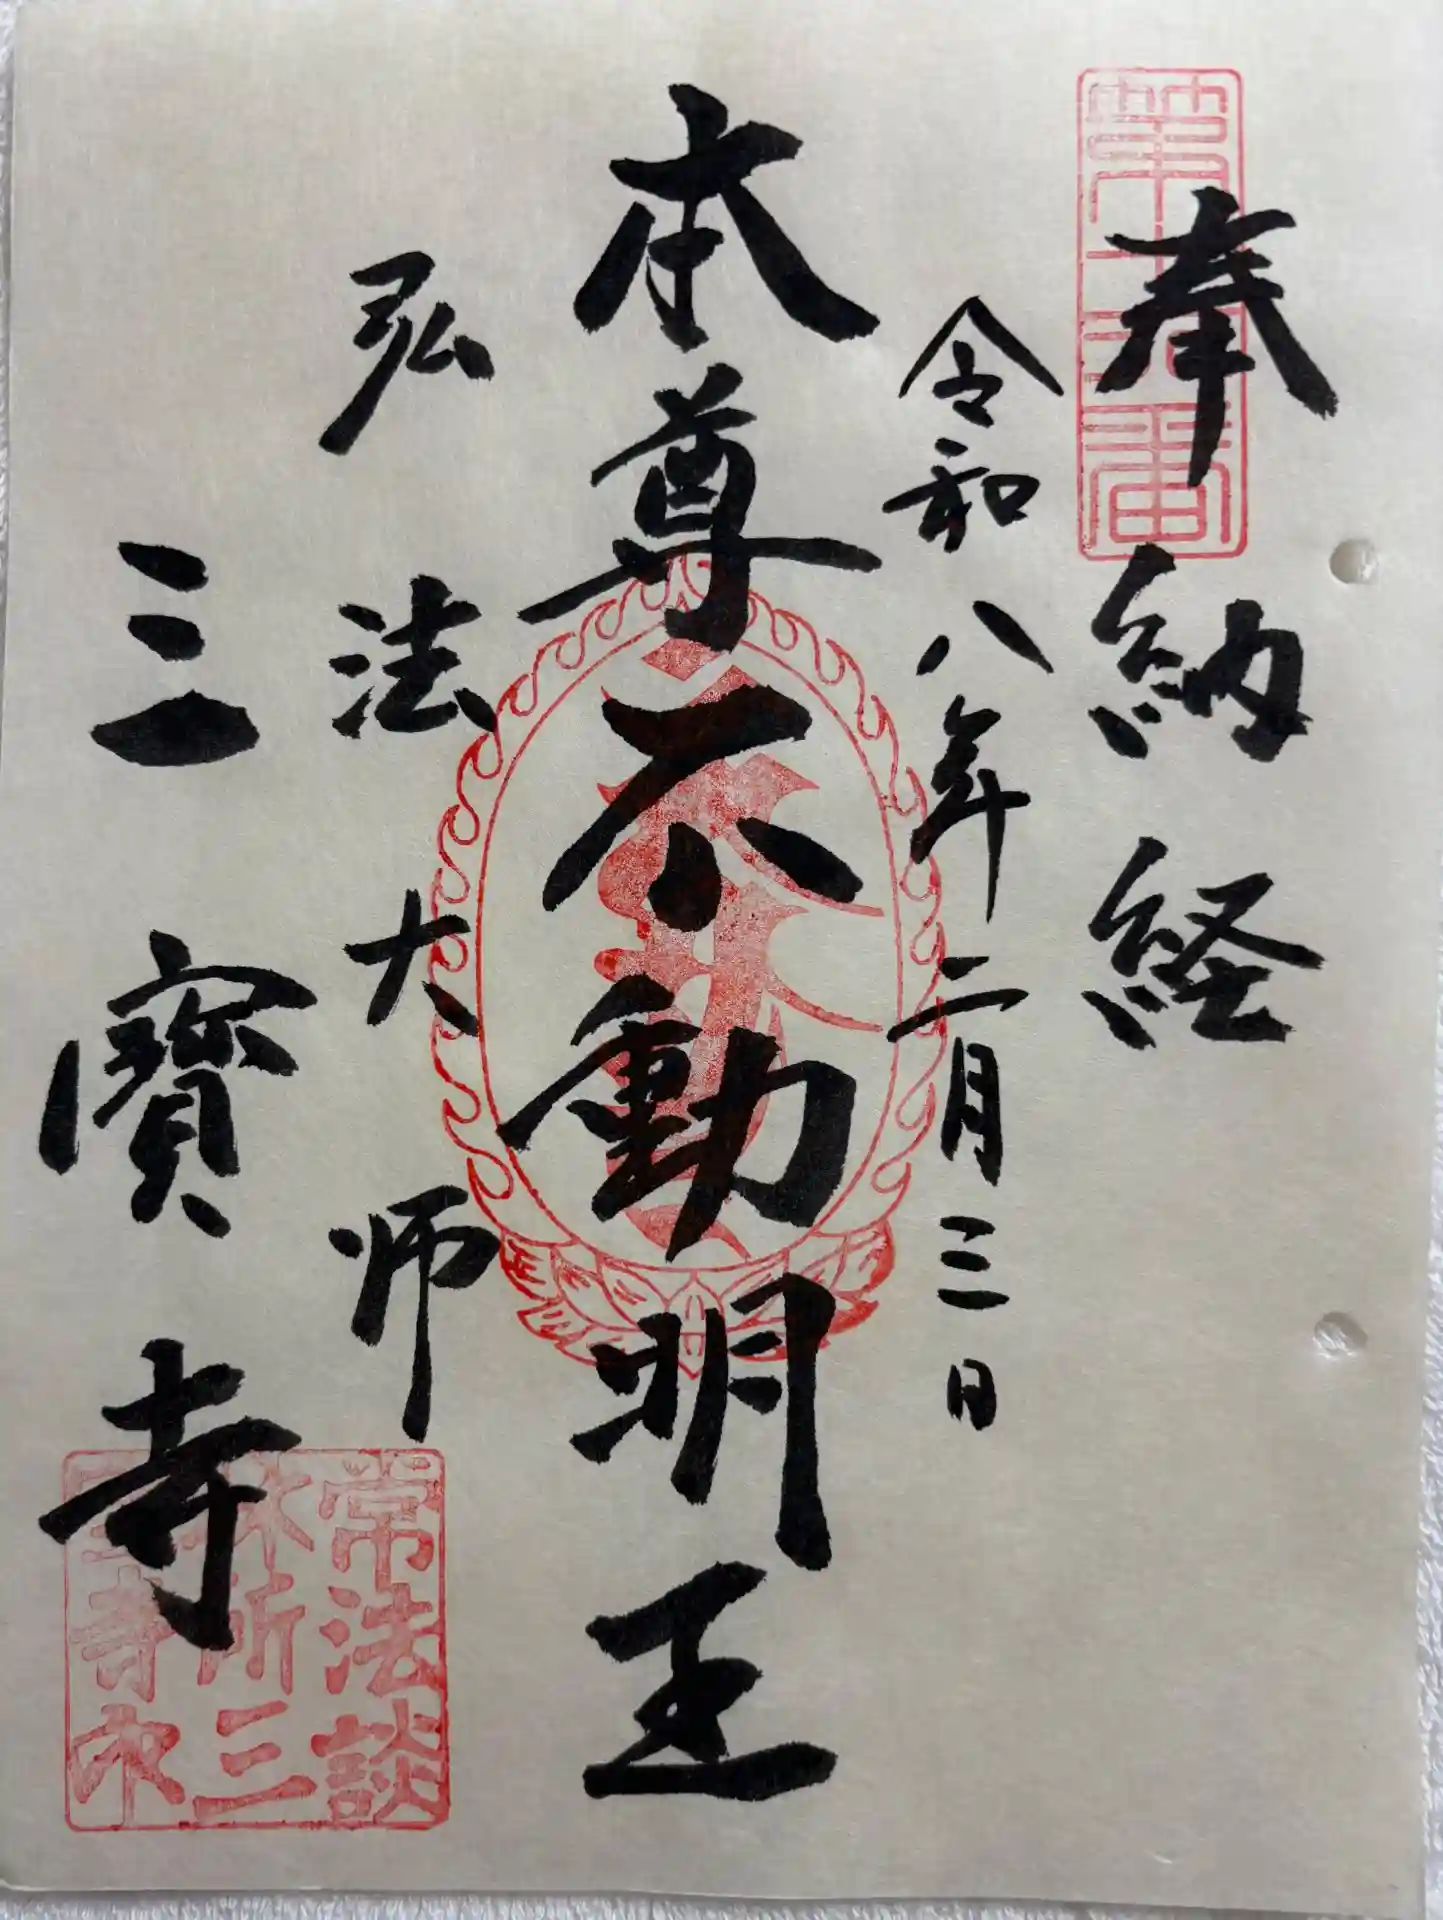 奉納経
令和八年二月三日
本尊不動明王
弘法大師
三寳寺
常法談
林所三
寳寺印